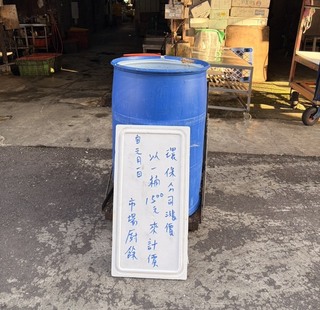 環保公司漲價
以一桶1500元來計價
自元月一日
市場廚餘